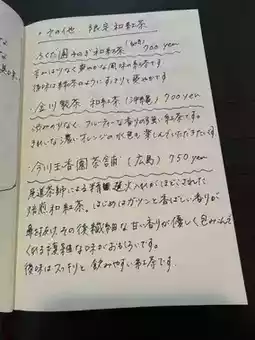 ・その他 限定和紅茶
ふくた園そのぎ和紅茶 700 yen
甘みはなく爽やかな風味の紅茶です
後味は緑茶のようにすっきりと飲めます
・金川製茶 和紅茶 (沖縄) 700 yen
渋みが少なく、フルーティーな香りの強い紅茶です。
きれいな濃いオレンジの水色も楽しんでいただけます。
・今川玉香園茶舗 (広島) 750 yen
尾道茶師による精選火入れがほどこされた
焙煎和紅茶。はじめはガツンと香ばしい香りが
その後繊細な甘い香りが優しく包みこんで
くれる様な味がおもしろいです。
後味はスッキリと飲みやすい紅茶です。